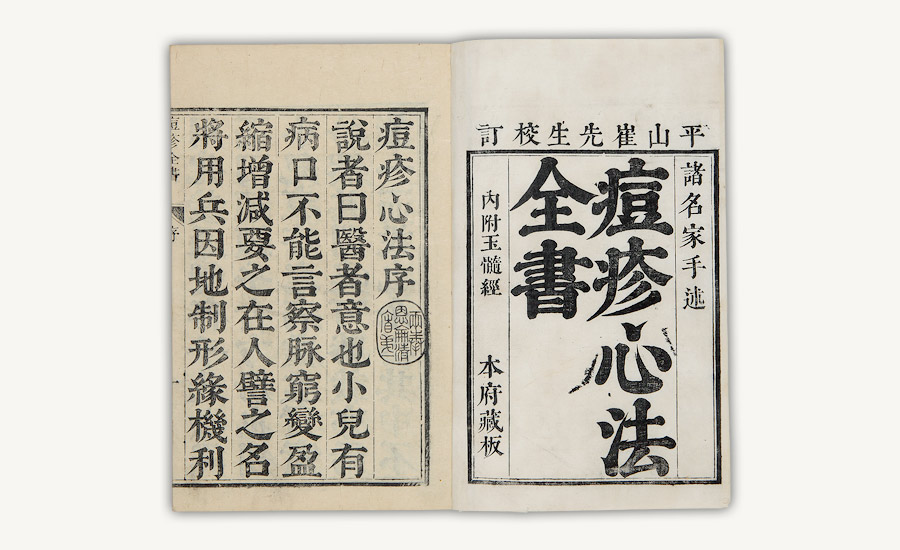 平山崔先生校訂
諸名家手述
痘疹心法
全書
內附玉髓經
本府藏板
痘疹心法序
說者曰醫者意也小兒有
病口不能言察脉窮變盈
縮增減要之在人譬之名
將用兵因地制形緣機利
痘疹全書
序